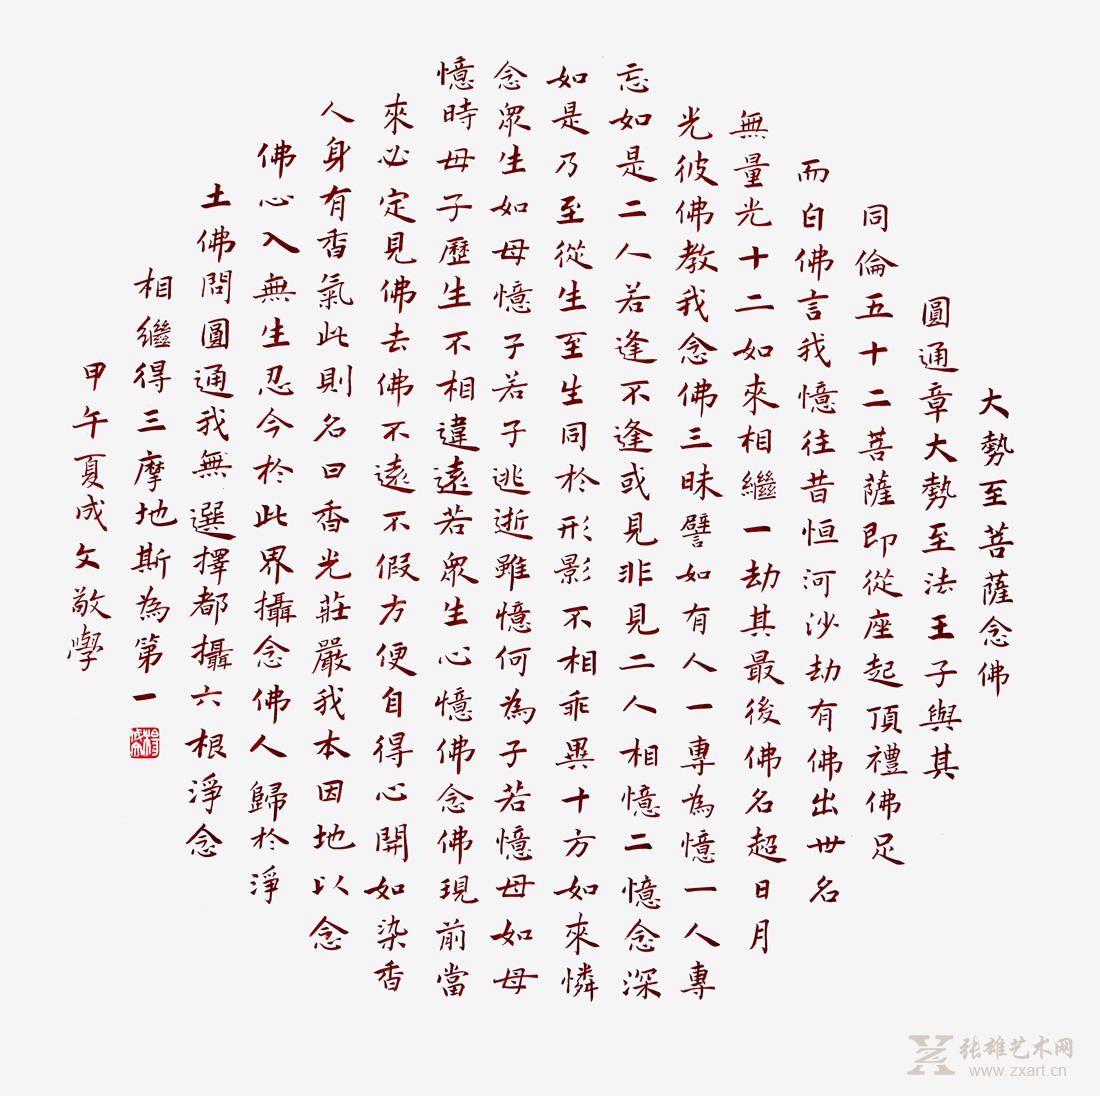 大勢至菩薩念佛
圓通章大勢至法王子與其
同倫五十二菩薩即從座起頂禮佛足
而白佛言我憶往昔恒河沙劫有佛出世名
無量光十二如來相繼一劫其最後佛名超日月
光彼佛教我念佛三昧譬如有人一專為憶一人專
忘如是二人若逢不逢或見非見二人相憶二憶念深
如是乃至從生至生同於形影不相乖異十方如來憐
念眾生如母憶子若子逃逝雖憶何為子若憶母如母
憶時母子歷生不相違遠若眾生心憶佛念佛現前當
來必定見佛去佛不遠不假方便自得心開如染香
人身有香氣此則名曰香光莊嚴我本因地以念
佛心入無生忍今於此界攝念佛人歸於淨
土佛問圓通我無選擇都攝六根淨念
相繼得三摩地斯為第一
甲午夏成文敬學
张雄艺术网
www.zxart.cn